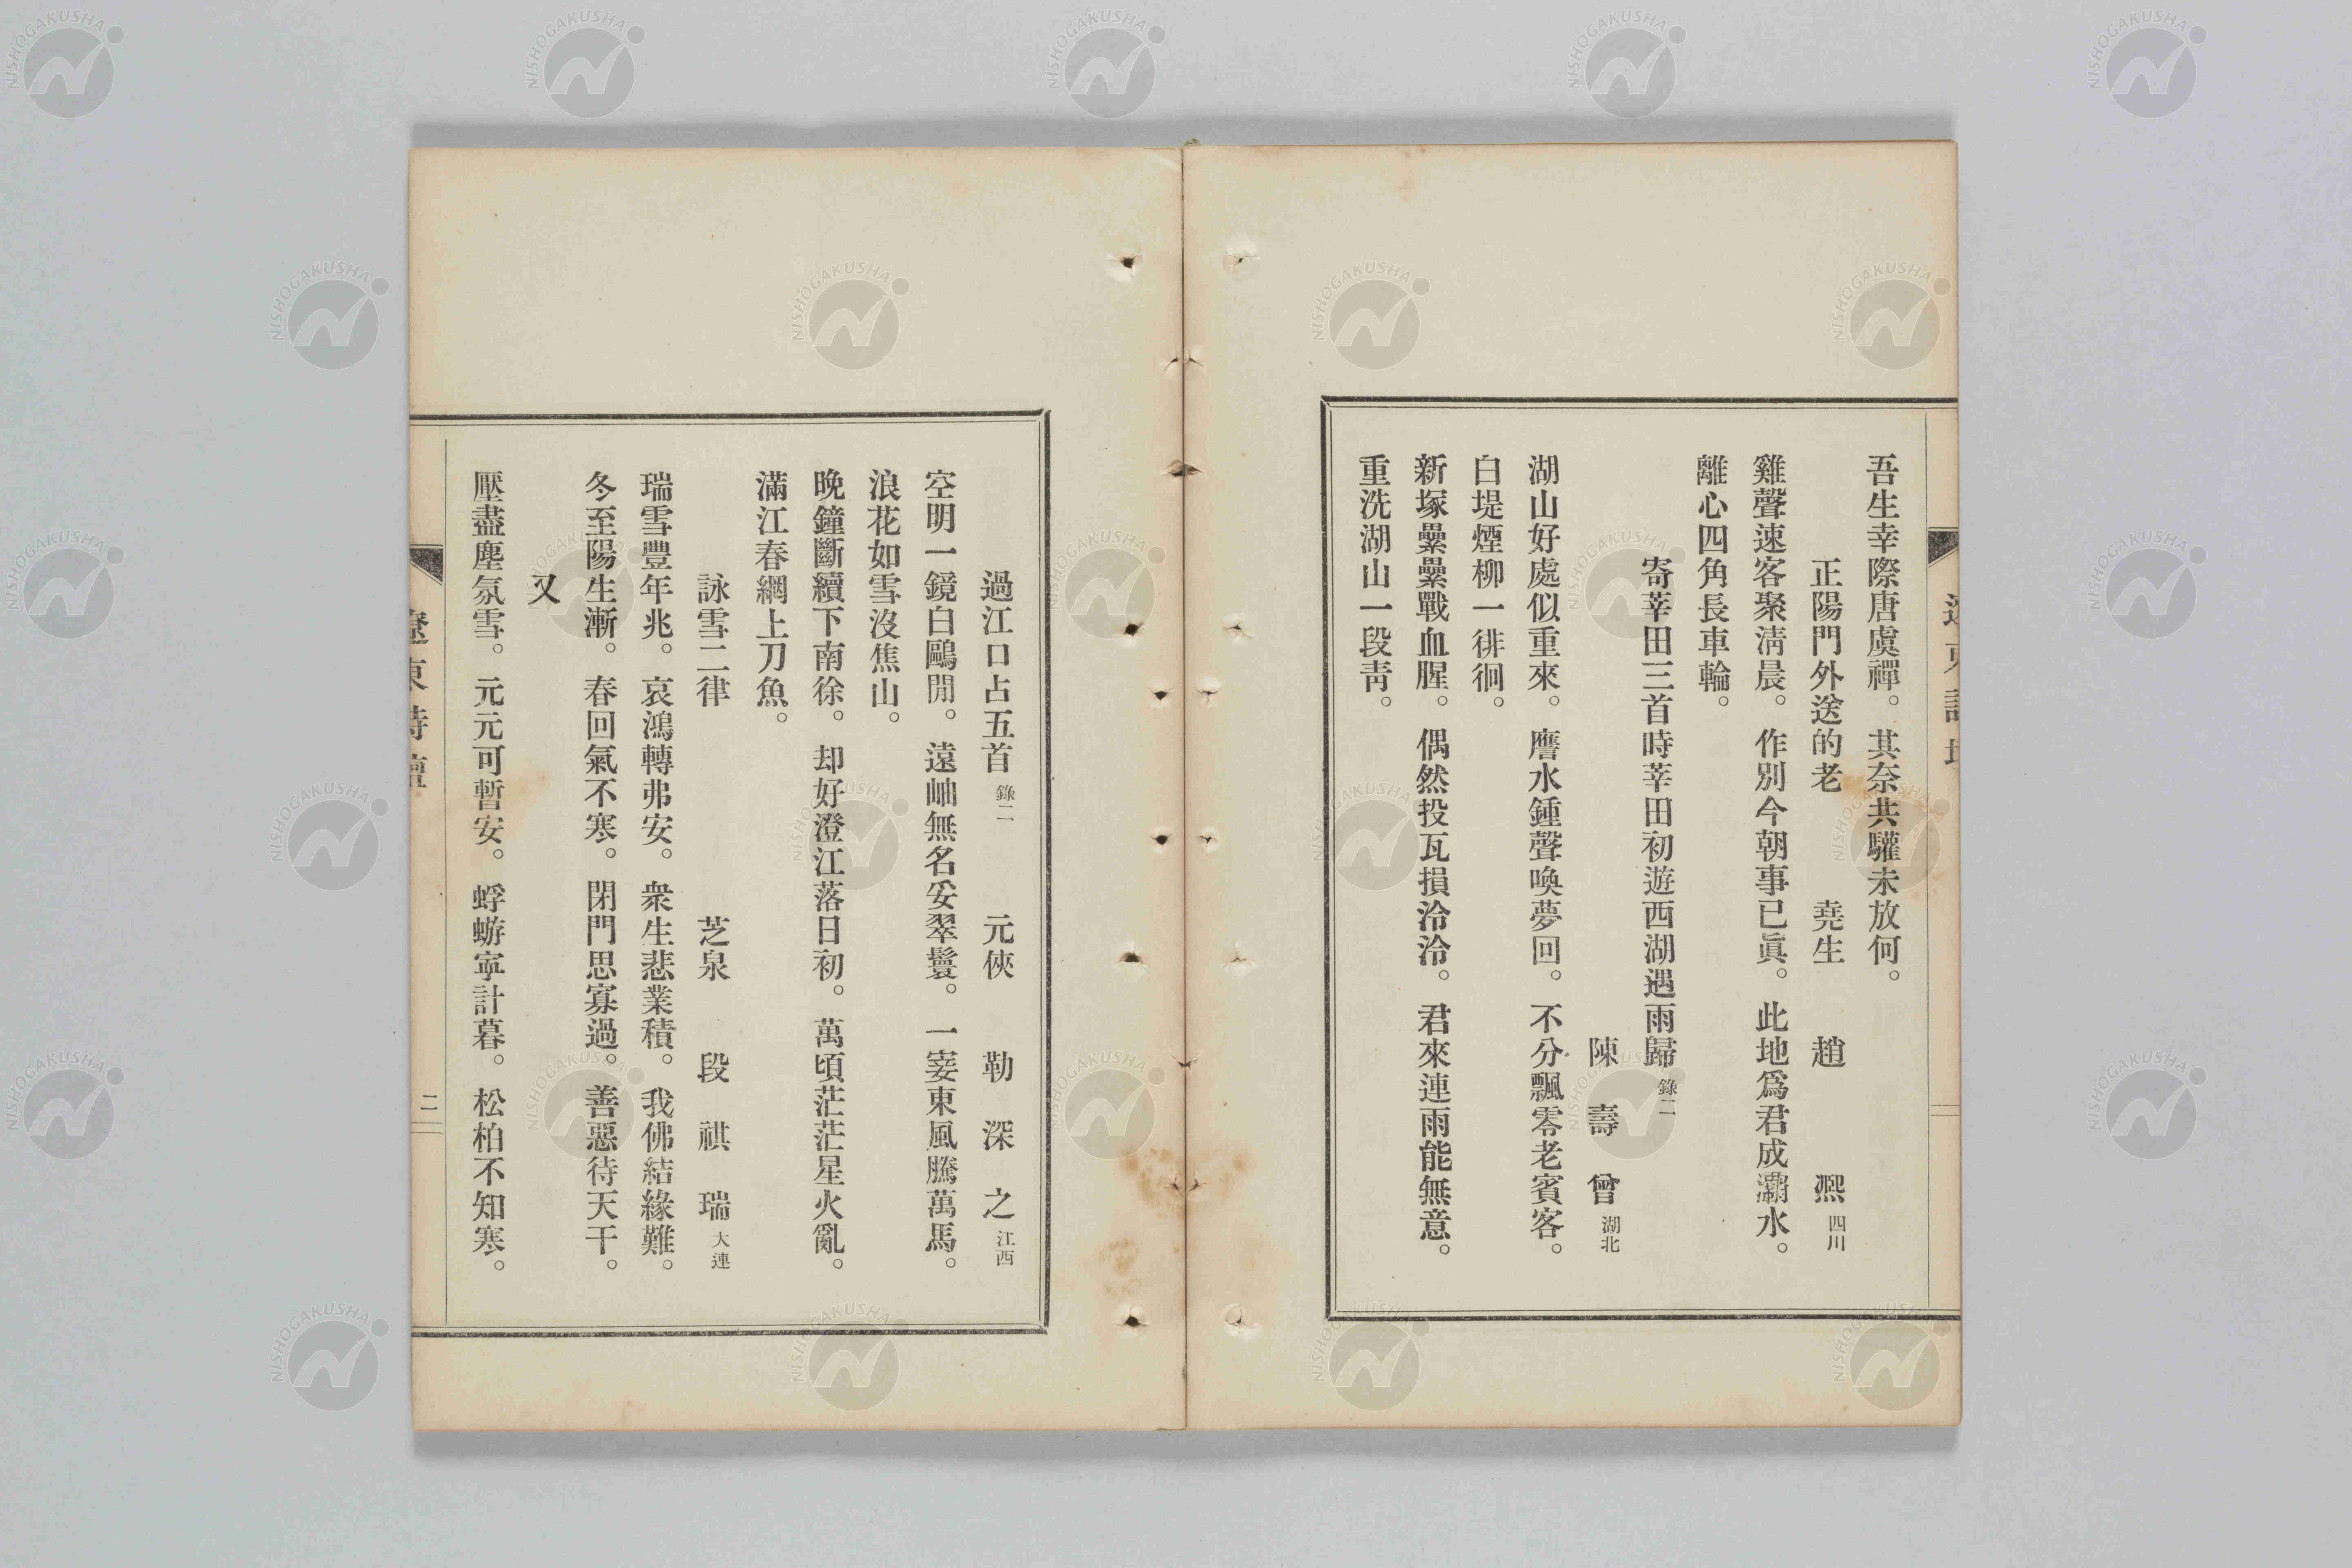 吾生幸際唐虞禪。其奈共驩未放何。
正陽門外送的老　堯生　趙熙 四川
雞聲速客聚淸晨。作別今朝事已眞。此地爲君成灞水。
離心四角長車輪。
寄莘田三首時莘田初遊西湖遇雨歸 錄二
陳壽曾 湖北
湖山好處似重來。麿水鍾聲喚夢回。不分飄零老賓客。
白堤煙柳一徘徊。
新塚纍纍戰血腥。偶然投瓦損泠泠。君來連雨能無意。
重洗湖山一段靑。
過江口占五首 錄二　元俠　勒深之 江西
空明一鏡白鷗閒。遠岫無名妥翠鬟。一霎東風騰萬馬。
浪花如雪沒焦山。
晚鐘斷續下南徐。却好澄江落日初。萬頃茫茫星火亂。
滿江春網上刀魚。
詠雪二律　芝泉　段祺瑞 大連
瑞雪豐年兆。哀鴻轉弗安。衆生悲業積。我佛結緣難。
冬至陽生漸。春回氣不寒。閉門思寡過。善惡待天干。
又
壓盡塵氛雪。元元可暫安。蜉蝣寧計暮。松柏不知寒。
遼東詩壇
二
NISHOGAKUSHA